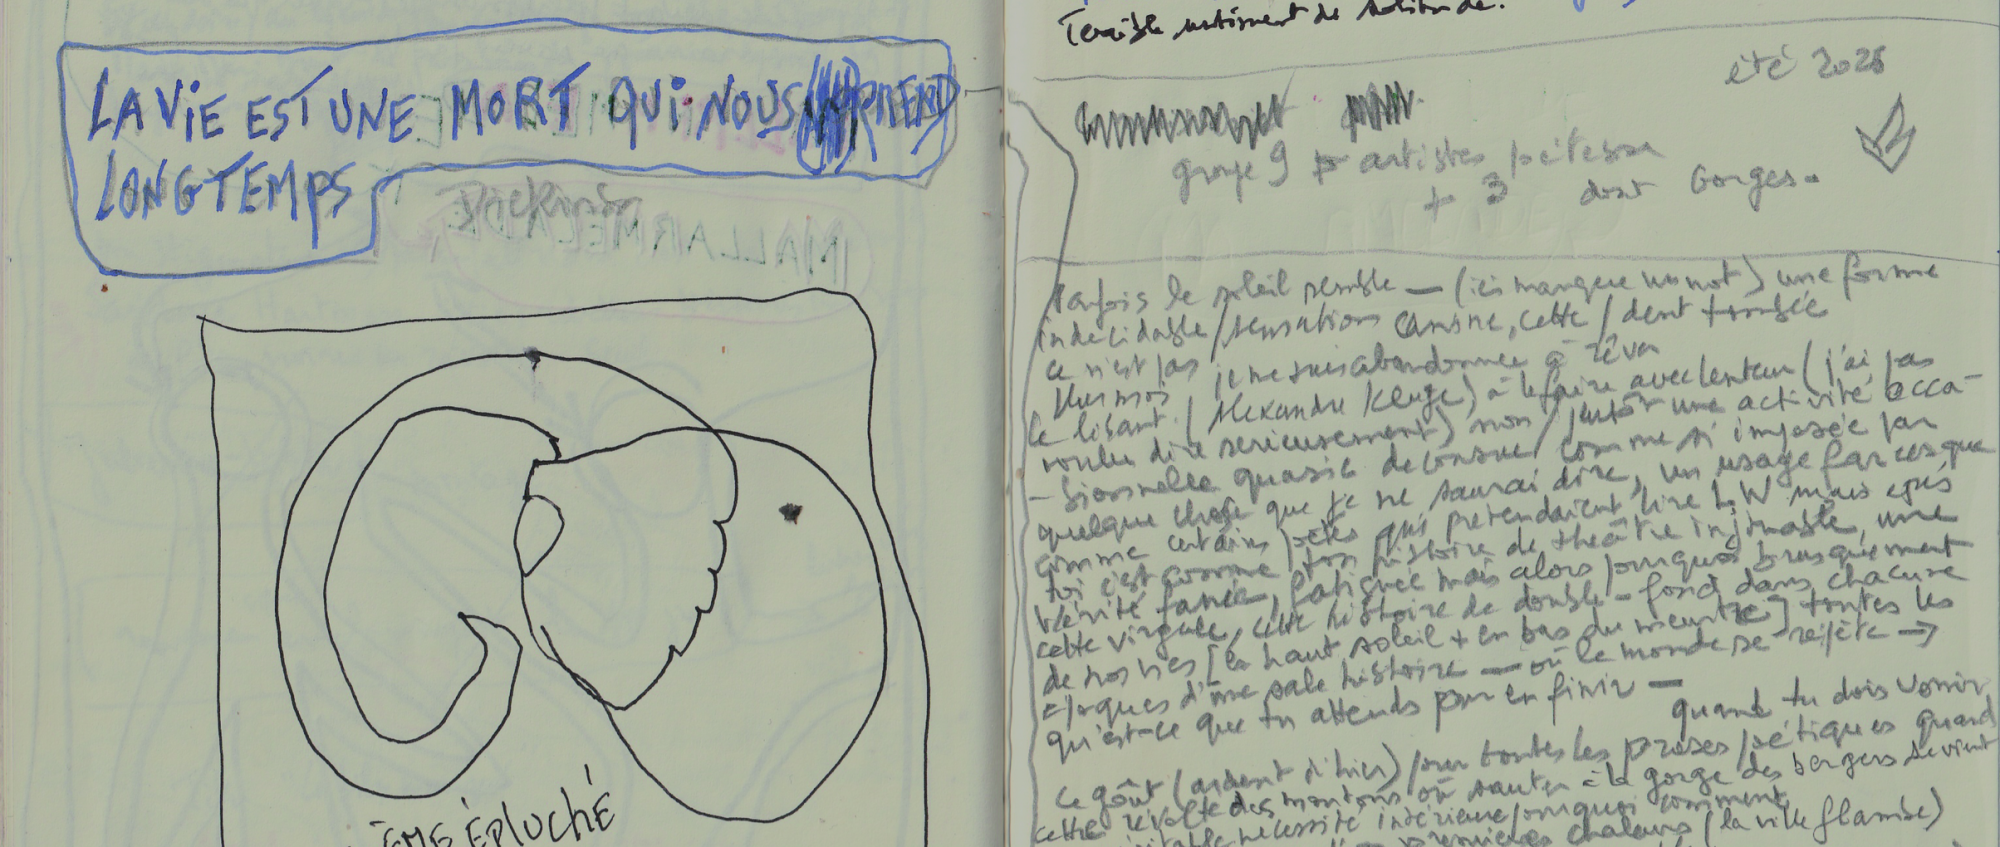 LA VIE EST UNE MORT QUI NOUS PREND
LONGTEMPS
Dickinson
MALLARMELADE,
ÈME ÉPLUCHÉ
Terrible sentiment de solitude.
été 2025
groupe 9 artistes
+ 3 dont Gorges.
Parfois le soleil semble — (ici manque un mot) une forme
indécidable / sensations canine, cette / dent tombée
ce n'est pas je me suis abandonnée à rêver
le lisant / Alexandre Kluge) à le faire avec lenteur (j'ai pas
voulu dire sérieusement) non / plutôt une activité occa-
-sionnelle quasie décousue / comme si imposée par
quelque chose que je ne saurai dire, un usage farcesque
comme certains poètes qui prétendaient lire L.W mais après
toi c'est comme ton histoire de théâtre infimable, une
vérité fanée, fatiguée mais alors pourquoi brusquement
cette virgule, cette histoire de double-fond dans chacune
de nos vies [en haut soleil + en bas du meurtre] toutes les
époques d'une sale histoire — où le monde se répète →
qu'est-ce que tu attends pour en finir —
quand tu dois vomir
ce goût (ardent d'hier) sur toutes les proses poétiques quand
cette révolte des moutons où sauter à la gorge des bergers devient
nécessité intérieure pourquoi comment
premières chaleurs (la ville flambe)